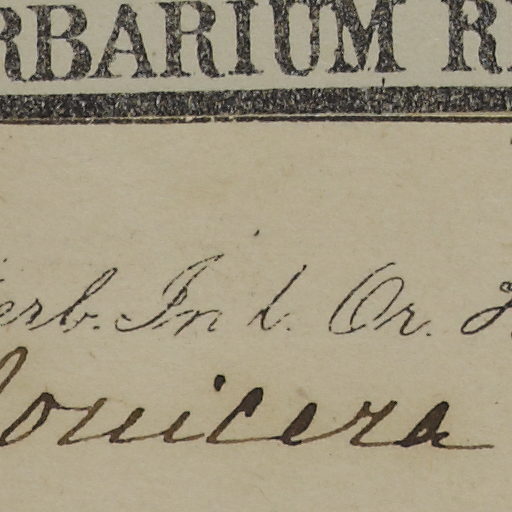 RBARIUM R
erb. Ind. Or. H
Lonicera